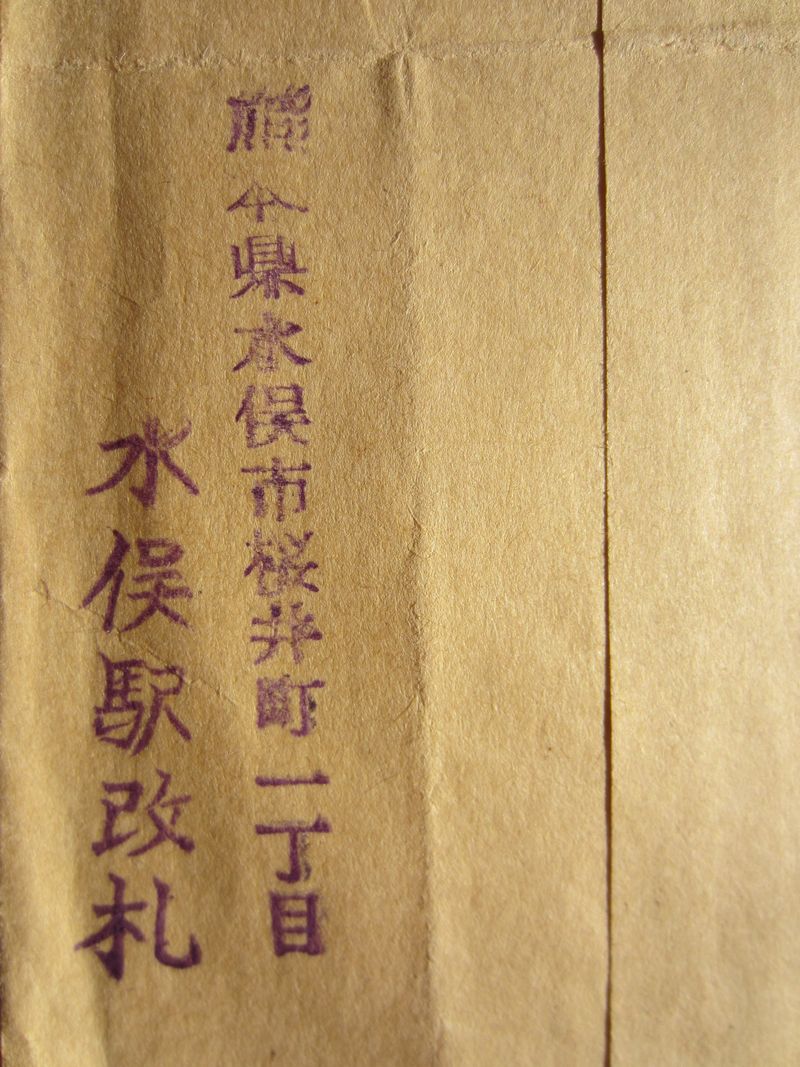 熊本県水俣市桜井町一丁目
水俣駅改札